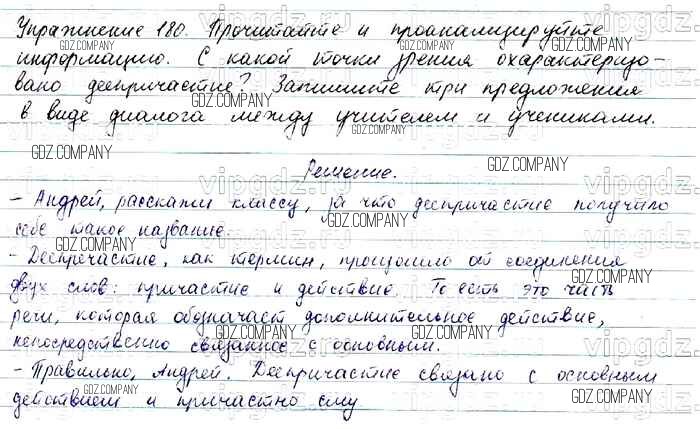 Упражнение 180. Прочитайте и проанализируйте
информацию. С какой точки зрения охарактеризо-
вано деепричастие? Запишите три предложения
в виде диалога между учителем и учениками.
Решение.
– Андрей, расскажи классу, за что деепричастие получило
себе такое название.
– Деепричастие, как термин, произошло от соединения
двух слов: причастие и действие. То есть это часть
речи, которая обозначает дополнительное действие,
непосредственно связанное с основным.
– Правильно, Андрей. Деепричастие связано с основным
действием и причастно ему
GDZ.COMPANY
vipgdz.ru